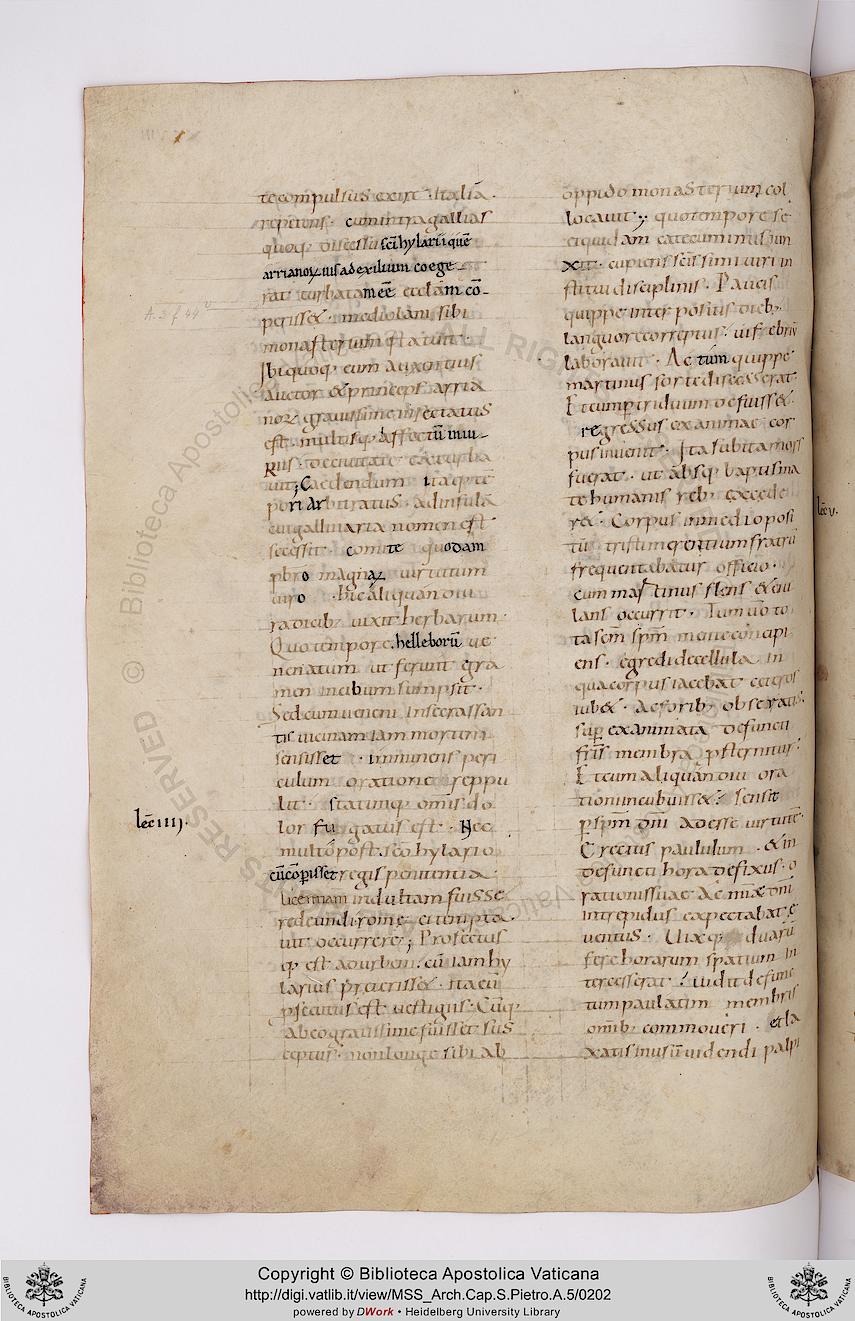 te compulsus exire · italiā ·
repetens · cum intra gallias
quoq; discessu sc̄i hylarii quē
arrianoꝝ uis ad exilium coege
rat turbatam eē ecclām cō
perisset · mediolani sibi
monasterium statuit ·
Ibi quoq; eum auxentius
auctor & princeps arria
noꝝ grauissime insectatus
est · multisq; affectū iniu
riis · de ciuitate exturba
uit; Caedendum itaq; tē
pori arbitratus · ad insulā
cui gallinaria nomen est
secessit · comite quodam
pb̄ro magnaꝝ uirtutum
uiro · hic aliquandiu
radicib; uixit herbarum ·
Quo tempore helleborū ue
nenatum ut ferunt gra
men in cibum sumpsit ·
Sed cum ueneni in se crassan
tis uim iam mortem
sensisset · imminens peri
culum oratione reppu
lit · statimq; omnis do
lor fugatus est · Nec
multo post sc̄o hylario
cū cōperisset regis penitentia
licentiam indultam fuisse
redeundi rome ei tempta
uit occurrere; Profectus
q; est ad urbem · cū iam hy
larius preterisset · ita eū
p̄secutus est uestigiis · Cūq;
ab eo gratissime fuisset sus
ceptus · non longe sibi ab
oppido monasterium col
locauit; quo tempore se
ei quidam catecuminus iun
xit · cupiens sc̄issimi uiri in
stitui disciplinis · Paucis
quippe interpositus dieb;
languore correptus · ui febriū
laborauit · Ac tum quippe
martinus forte discesserat
Et cum ꝑ triduum defuisset ·
regressus exanimae cor
pus inuenit · Ita subita mors
fuerat · ut absq; baptisma
te humanis reb; excede
ret · Corpus in medio posi
tū tristi merentium fratrū
frequentabatur officio ·
cum martinus flens & eiu
lans occurrit · Tum uō to
ta sc̄m sp̄m mente concipi
ens · egredi de cellula in
qua corpus iacebat ceteros
iubet · Ac forib; obseratis
suꝑ exanimata defuncti
fr̄is membra ꝓsternitur ·
Et cum aliquandiu ora
tioni incubuisset · sensit
ꝑ sp̄m dn̄i adesse uirtutē
Erectus paululum · & in
defuncti hora defixus · o
rationis suae ac mīae dn̄i
intrepidus expectabat e
uentus · Vixq; duarū
fere horarum spatium in
tercesserat · uidit defunc
tum paulatim membris
omīb; commoueri · et la
xatis in usū uidendi palpi
lec̄ iiii ·
lec̄ v.
A.2 f 44 v
Copyright © Biblioteca Apostolica Vaticana
http://digi.vatlib.it/view/MSS_Arch.Cap.S.Pietro.A.5/0202
powered by DWork • Heidelberg University Library